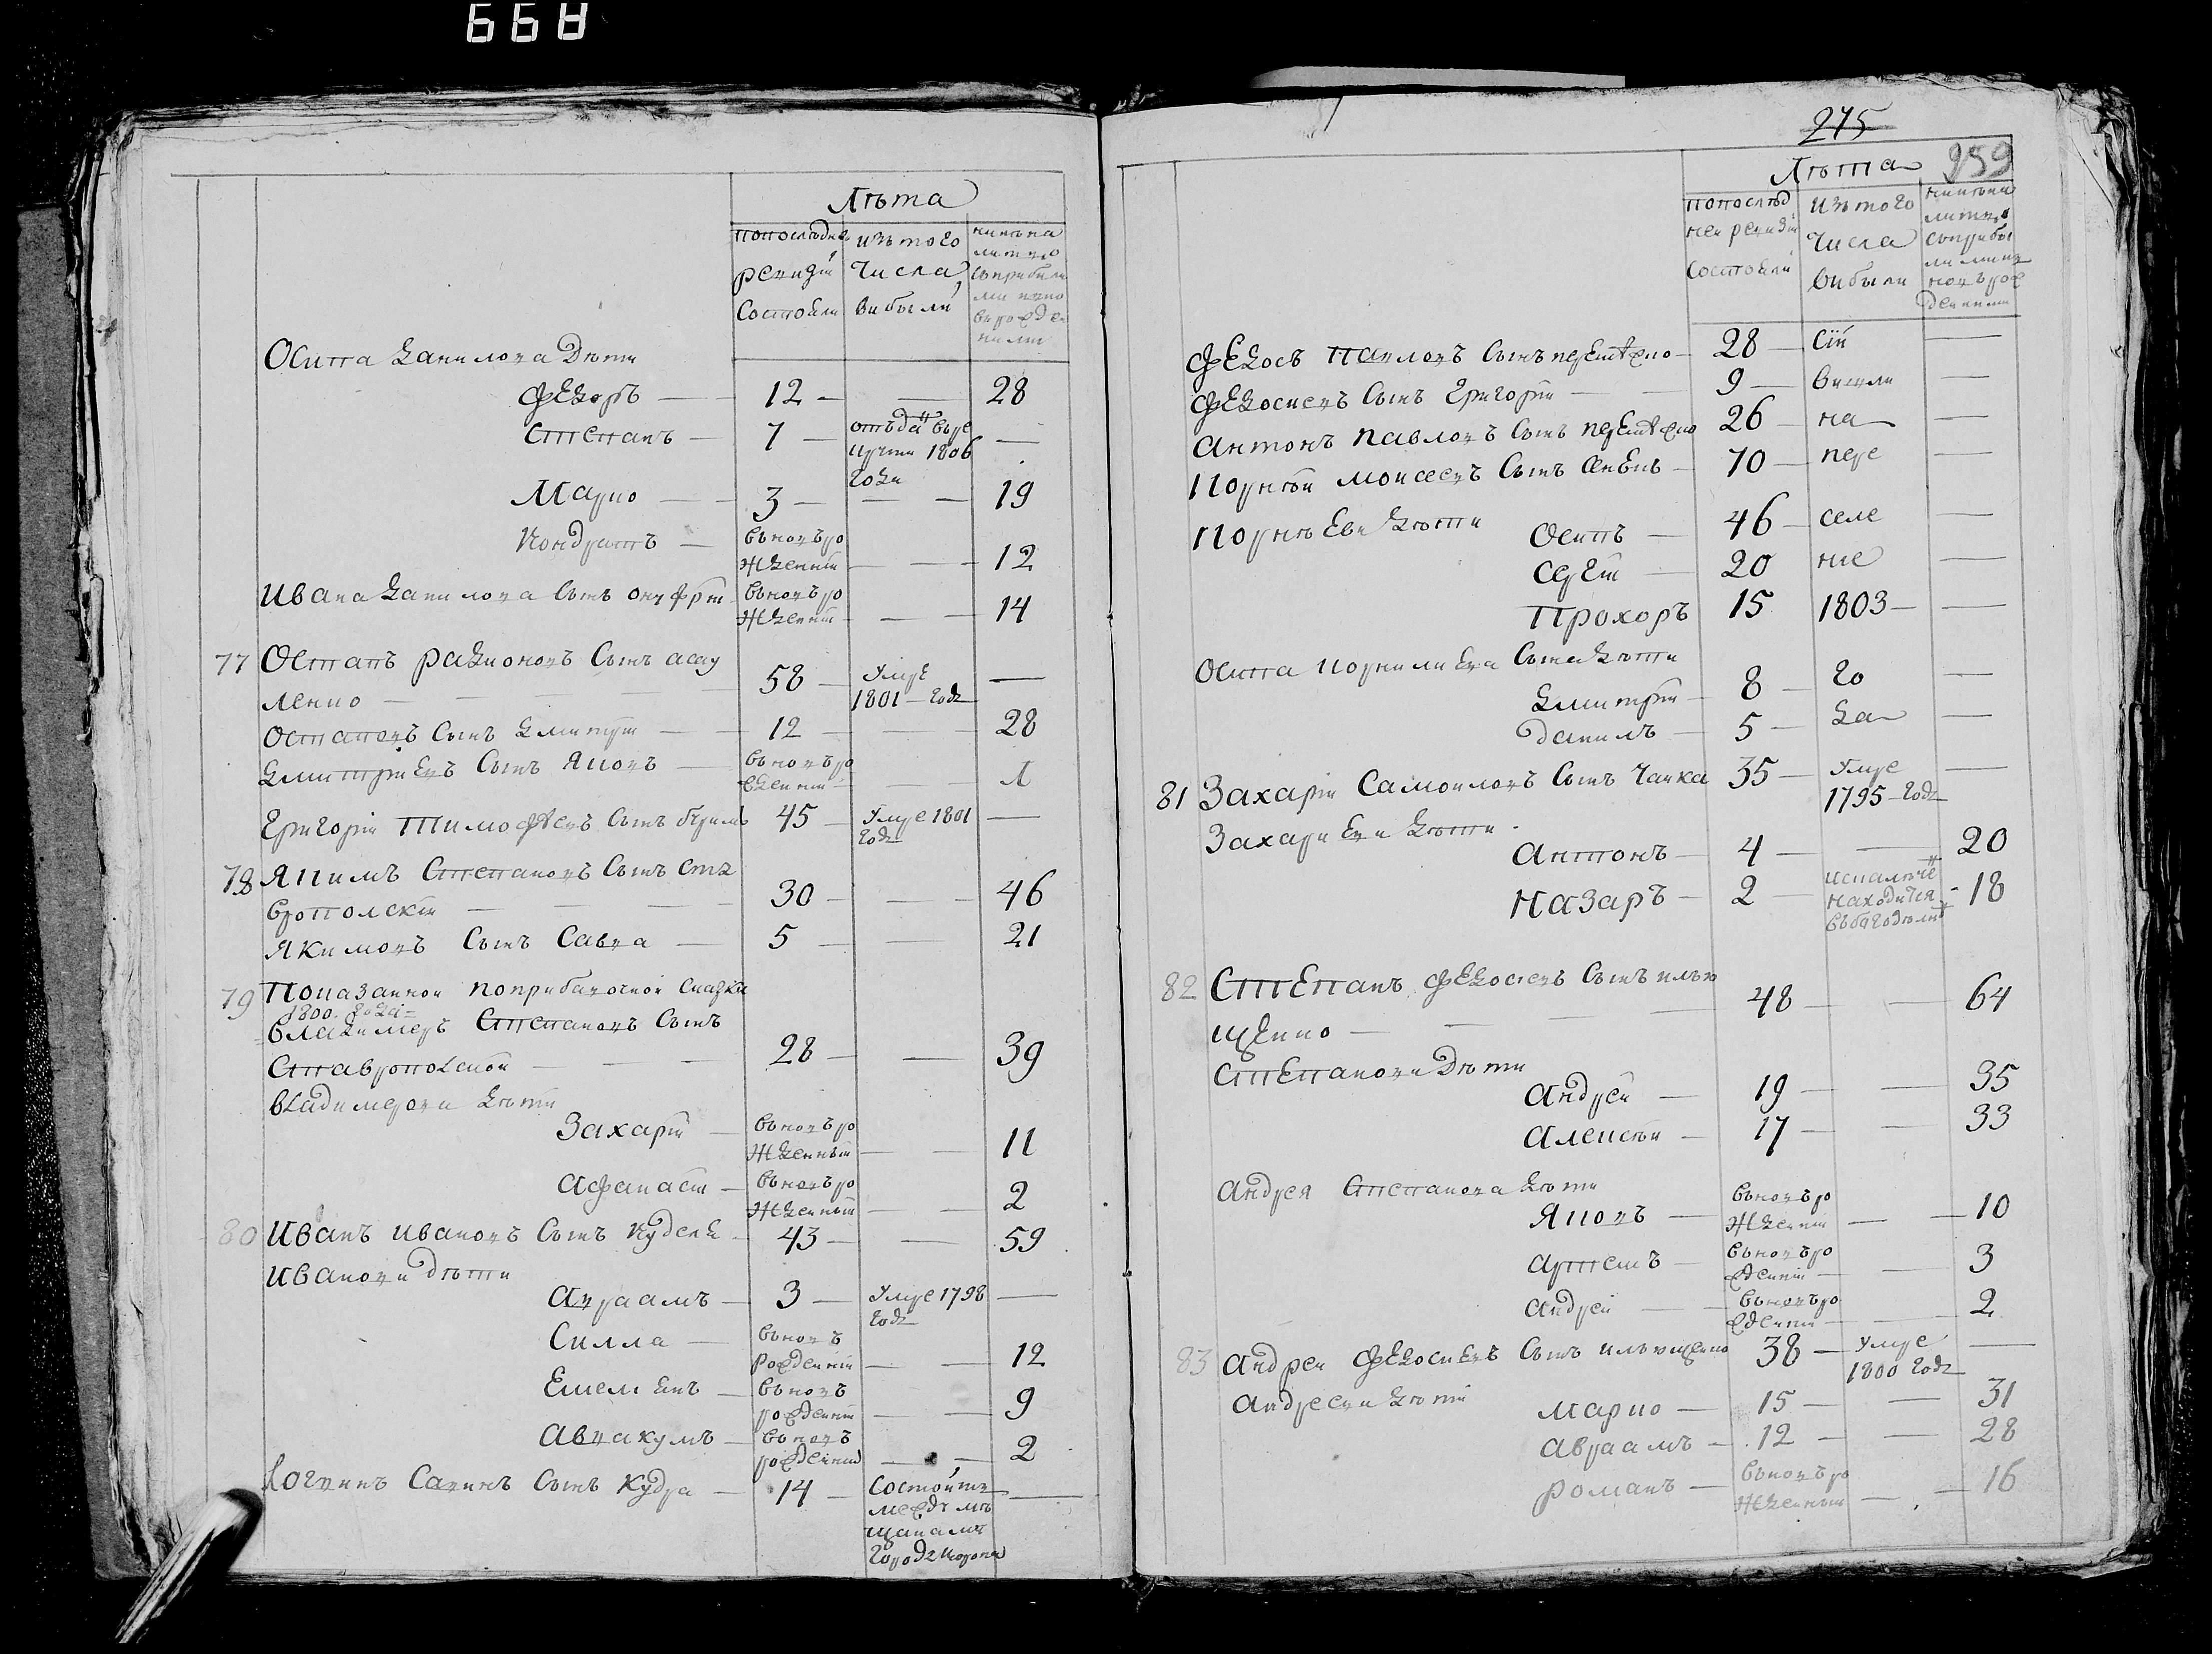 668
Лѣта
попослѣдне изътого нынѣна
ревизіи числа лицо
состояли выбыли
Осипа Данилова Дѣти
Федоръ — 12 — — 28
Степанъ — 7 — отъдан въре
крути 1806 —
года
Марко — 3 — — 19
Кондратъ — вновь ро
жденній — — 12
Ивана Данилова сынъ Онуфрій вновь ро
жденній — — 14
77 Остапъ Радионовъ Сынъ асау
ленко — 58 — умре
1801 — года —
Остаповъ Сынъ Дмитрій — 12 — — 28
Дмитріевъ Сынъ Яковъ — вновь ро
жденній — — 1
Григорій Тимофѣевъ Сынъ 45 — умре 1801
года —
78 Якимъ Степановъ Сынъ Ста
вропольскій — 30 — — 46
Якимовъ Сынъ Савва — 5 — — 21
79 Показанной поприбавочной Сказки
1800. года
Владимеръ Степановъ Сынъ
Ставропольской — 28 — — 39
Владимерови Дѣти
Захарій — вновь ро
жденный — — 11
Афанасій — вновь ро
жденный — — 2
80 Иванъ Ивановъ Сынъ 43 — — 59
Иванови дѣти
Авраамъ — 3 — умре 1798
года —
Силла — вновь
рожденній — — 12
Емельянъ — вновь
рожденній — — 9
Аввакумъ — вновь
рожденній — — 2
Логвинъ Савинъ Сынъ Кудра — 14 — Состоитъ —
между мѣ
щанами
города
275
Лѣта 959
попослѣд изътого
ней ревизіи числа
состояли выбыли
Федосъ Павловъ Сынъ — 28 — сіи —
Федосиевъ Сынъ Григорій — 9 — вишли —
Антонъ Павловъ Сынъ 26 — на —
Корнѣй Моисеевъ Сынъ — 70 — пере —
Корнѣеви Дѣти Осипъ — 46 — селе —
Сергій — 20 ние —
Прохоръ 15 1803 — —
Осипа Корнилиева Сына Дѣти
Дмитрій — 8 — го —
Данилъ — 5 — да —
81 Захарій Самойловъ Сынъ Чайка 35 — умре —
1795 — года
Захариеви Дѣти
Антонъ — 4 — — 20
Назаръ — 2 — —18
находится
82 Степанъ Федосиевъ Сынъ Илью
щенко — 48 — — 64
Степанови Дѣти
Андрей — 19 — — 35
Алексѣй — 17 — — 33
Андрея Степанова Дѣти
Яковъ — вновь ро
жденній — — 10
Артемъ — вновь ро
жденній — — 3
Андрей — вновь ро
жденній — — 2
83 Андрей Федосиевъ Сынъ Ильющенко 38 — умре —
1800 года
Андрееви Дѣти
Марко — 15 — — 31
Авраамъ — 12 — — 28
Романъ — вновь ро
жденный — — 16